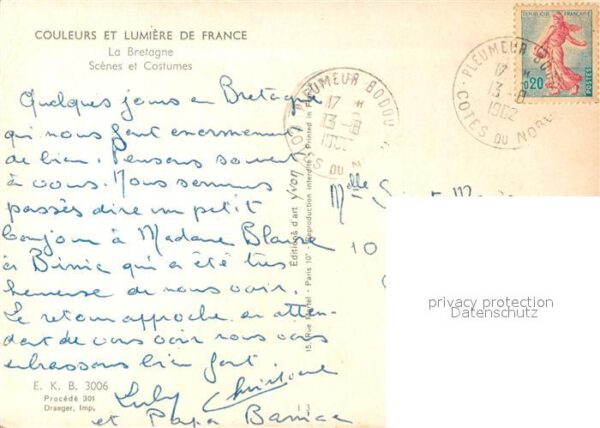 COULEURS ET LUMIÈRE DE FRANCE
La Bretagne
Scènes et Costumes
Quelques jours en Bretagne
qui nous font enormement
de bien. Pensons souvent
à vous. Nous sommes
passés dire un petit
bonjour à Madame
à Binic qui a été très
heureuse de nous voir.
Le retour approche en atten-
dant de vous voir nous vous
embrassons bien fort
et Papa
E. K. B. 3006
Procédé 301
Draeger, Imp.
Editions d'art Yvon
15, Rue Martel - Paris 10e - Reproduction interdite - Printed in
PLEUMEUR BODOU
17 H
13 -8
REPUBLIQUE FRANÇAISE
0,20
POSTES
PLEUMEUR BODOU
17 H
13 -8
1962
COTES DU NORD
Melle
10
privacy protection
Datenschutz